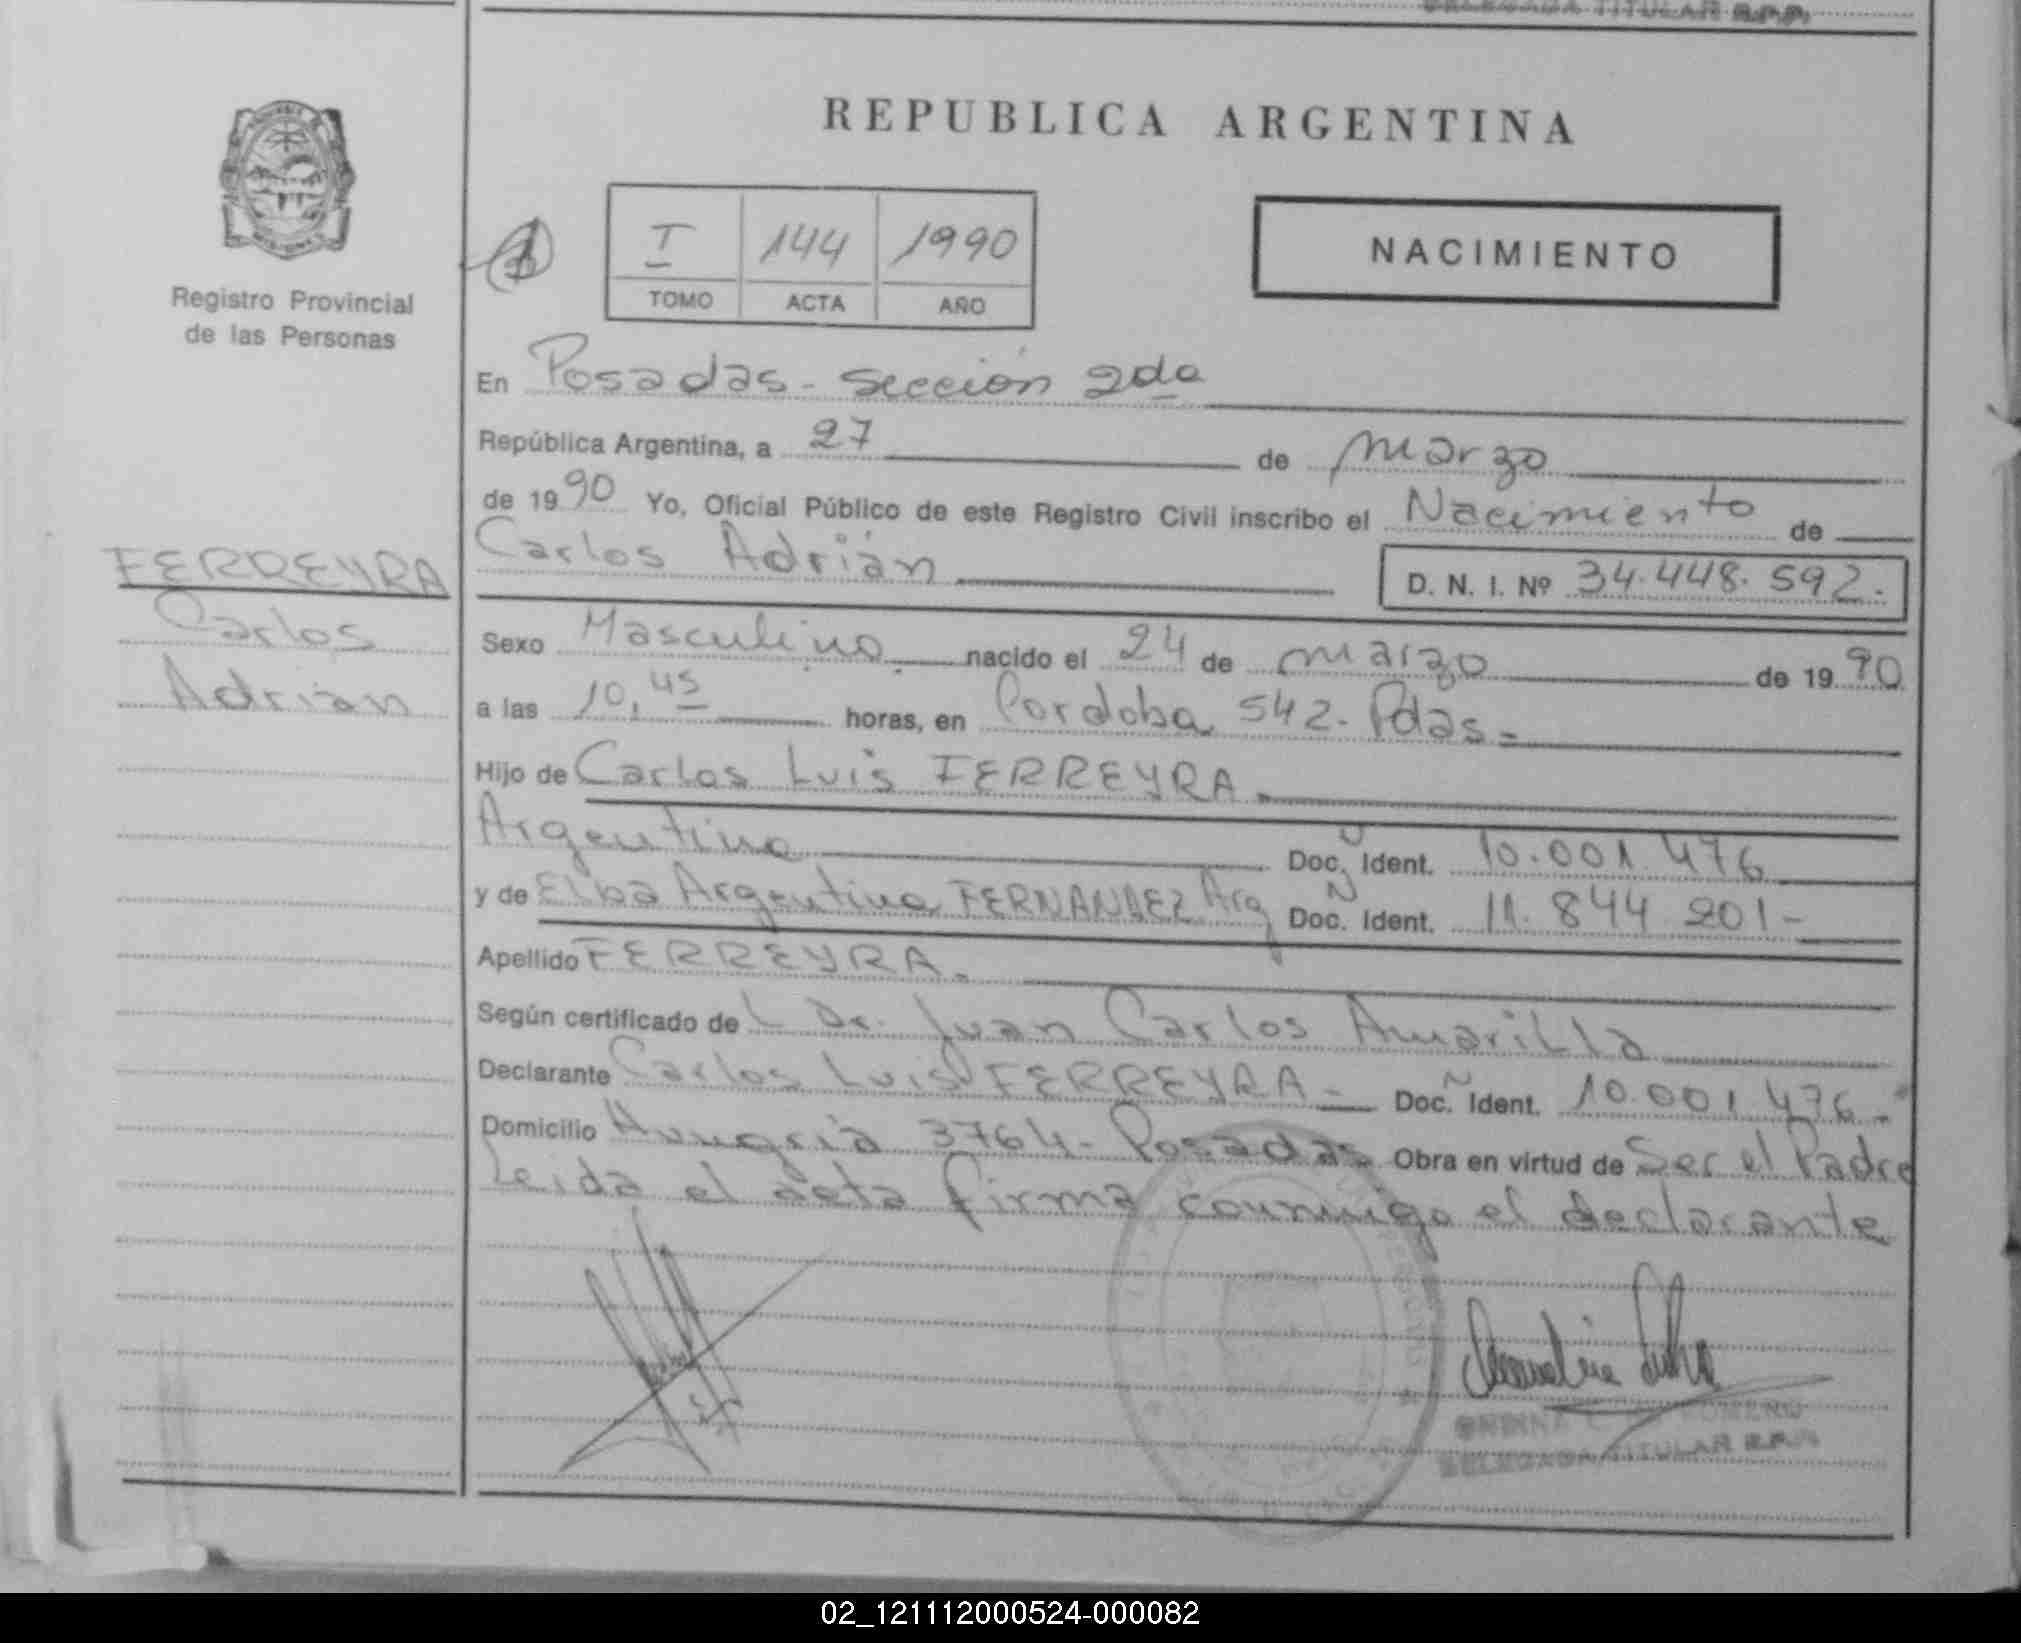 DELEGADA TITULAR R.P.P.
REPUBLICA ARGENTINA
I 144 1990
TOMO ACTA AÑO
NACIMIENTO
Registro Provincial
de las Personas
FERREYRA
Carlos
Adrian
En Posadas - Sección 2da
República Argentina, a 27 de marzo
de 1990 Yo, Oficial Público de este Registro Civil inscribo el Nacimiento de
Carlos Adrián D. N. I. Nº 34.448.592.
Sexo Masculino. nacido el 24 de marzo de 1990
a las 10,45 horas, en Cordoba 542. Pdas.
Hijo de Carlos Luis FERREYRA.
Argentino Doc. Ident. 10.001.476
y de Elba Argentina FERNANDEZ Arg Doc. Ident. 11.844 201-
Apellido FERREYRA.
Según certificado de L Dr. Juan Carlos Amarilla
Declarante Carlos Luis FERREYRA - Doc. Ident. 10.001.476.-
Domicilio Hungría 3764 - Posadas Obra en virtud de Ser el Padre
Leida el acta firma conmigo el declarante
ROMERO
DELEGADA TITULAR R.P.P.
02_121112000524-000082